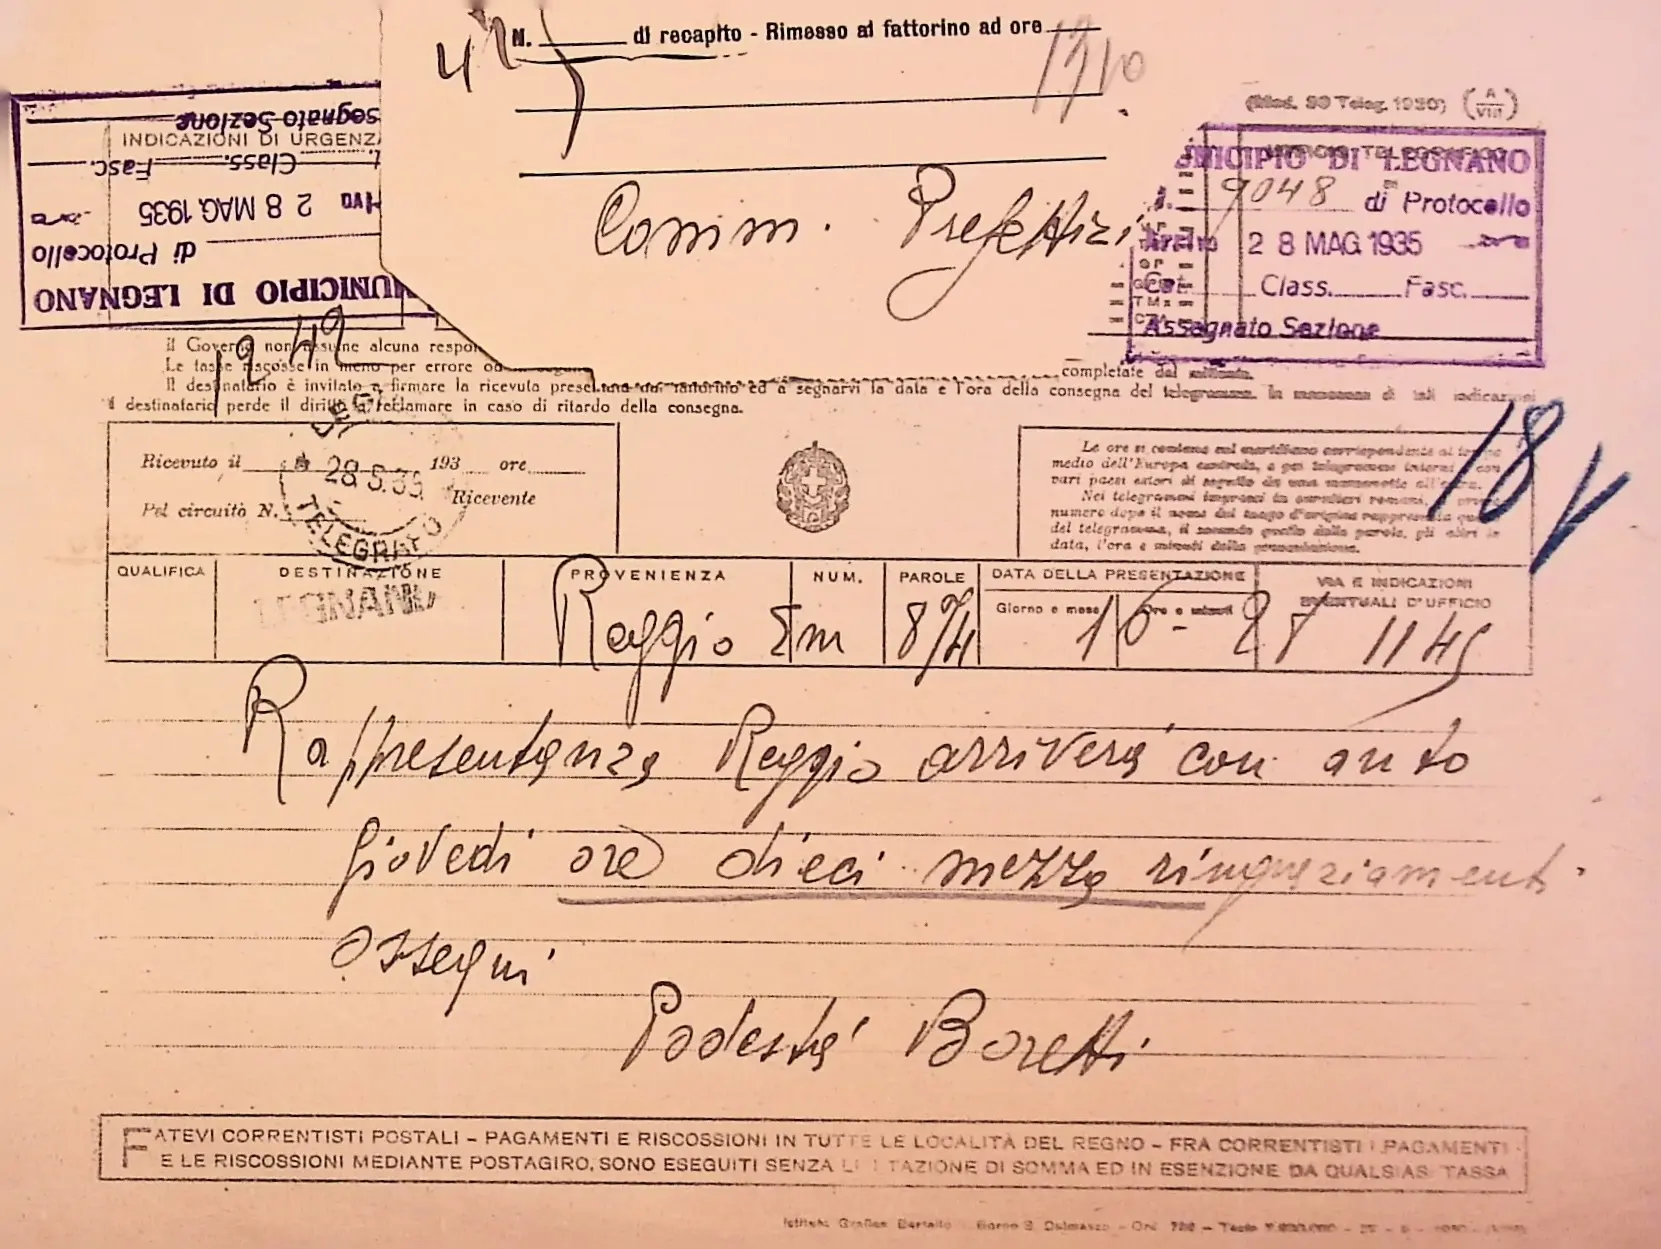 N. di recapito - Rimesso al fattorino ad ore 1910
42
(Mod. 30 Teleg. 1930) (A/VIII)
INDICAZIONI DI URGENZA
MUNICIPIO DI LEGNANO
di Protocollo
28 MAG. 1935
Class. Fasc.
Assegnato Sezione
MUNICIPIO DI LEGNANO
9048 di Protocollo
Arrivo 28 MAG. 1935
Cat. Class. Fasc.
Assegnato Sezione
Comm. Prefettizi
1942
Il Governo non assume alcuna respon
Le tasse riscosse in meno per errore od completate dal
Il destinatario è invitato a firmare la ricevuta dal fattorino ed a segnarvi la data e l'ora della consegna del telegramma. In mancanza di tali indicazioni
il destinatario perde il diritto a reclamare in caso di ritardo della consegna.
18
Ricevuto il 193 ore
28.5.35
Pel circuito N. Ricevente
TELEGRAFO
Le ore si contano sul meridiano corrispondente al tempo
medio dell'Europa centrale, e pei telegrammi interni e con
vari paesi esteri di seguito da una mezzanotte all'altra.
Nei telegrammi impressi in caratteri romani, il primo
numero dopo il nome del luogo d'origine rappresenta quello
del telegramma, il secondo quello delle parole, gli altri la
data, l'ora e minuti della presentazione.
QUALIFICA DESTINAZIONE PROVENIENZA NUM. PAROLE DATA DELLA PRESENTAZIONE VIA E INDICAZIONI
Giorno e mese Ore e minuti EVENTUALI D'UFFICIO
LEGNANO Reggio Em 874 16 - 28 1145
Rappresentanza Reggio arriverà con auto
giovedì ore dieci mezza ringraziamenti
ossequi
Podestà Boretti
FATEVI CORRENTISTI POSTALI - PAGAMENTI E RISCOSSIONI IN TUTTE LE LOCALITÀ DEL REGNO - FRA CORRENTISTI I PAGAMENTI
E LE RISCOSSIONI MEDIANTE POSTAGIRO, SONO ESEGUITI SENZA LIMITAZIONE DI SOMMA ED IN ESENZIONE DA QUALSIASI TASSA
Istituto Grafico Bertello - Borgo S. Dalmazzo - Ord.